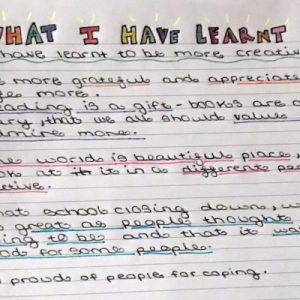 WHAT I HAVE LEARNT
have learnt to be more creative
more grateful and appreciate
more
is a gift - books are a
, that we all should value
more.
world is beautiful place,
look at it in a different
school closing down, w
great as people thought
to be and that it wa
for some people.
proud of people for coping.